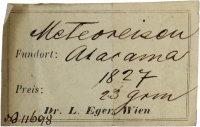 Meteoreisen
Fundort: Atacama
1827
Preis: 23 grm
Dr. L. Eger, Wien
A 11698